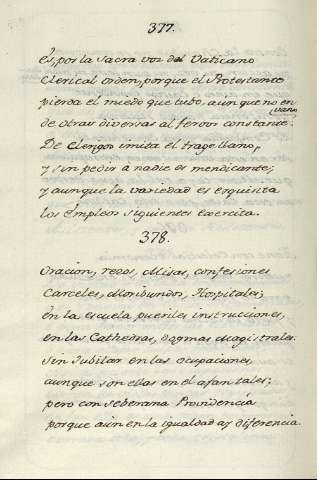 377.
és, por la Sacra voz del Vaticano
Clerical orden, porque el Protestante
pierda el miedo que tubo, aunque no en
vano
de otras diversas al fervor constante:
De Clerigos imita el trage llano,
y sin pedir à nadie es mendicante;
y aunque la variedad es exquisita
los émpleos siguientes exercita.
378.
Oracion, rezos, Misas, confesiones
Carceles, Moribundos, Hospitales;
én la escuela pueriles instrucciones,
en las Cathedras, Dogmas Magistrales.
Sin Jubilar en las ocupaciones,
aunque son ellas en el afan tales;
pero con Soberana Providencia
porque aún en la igualdad ay diferencia.